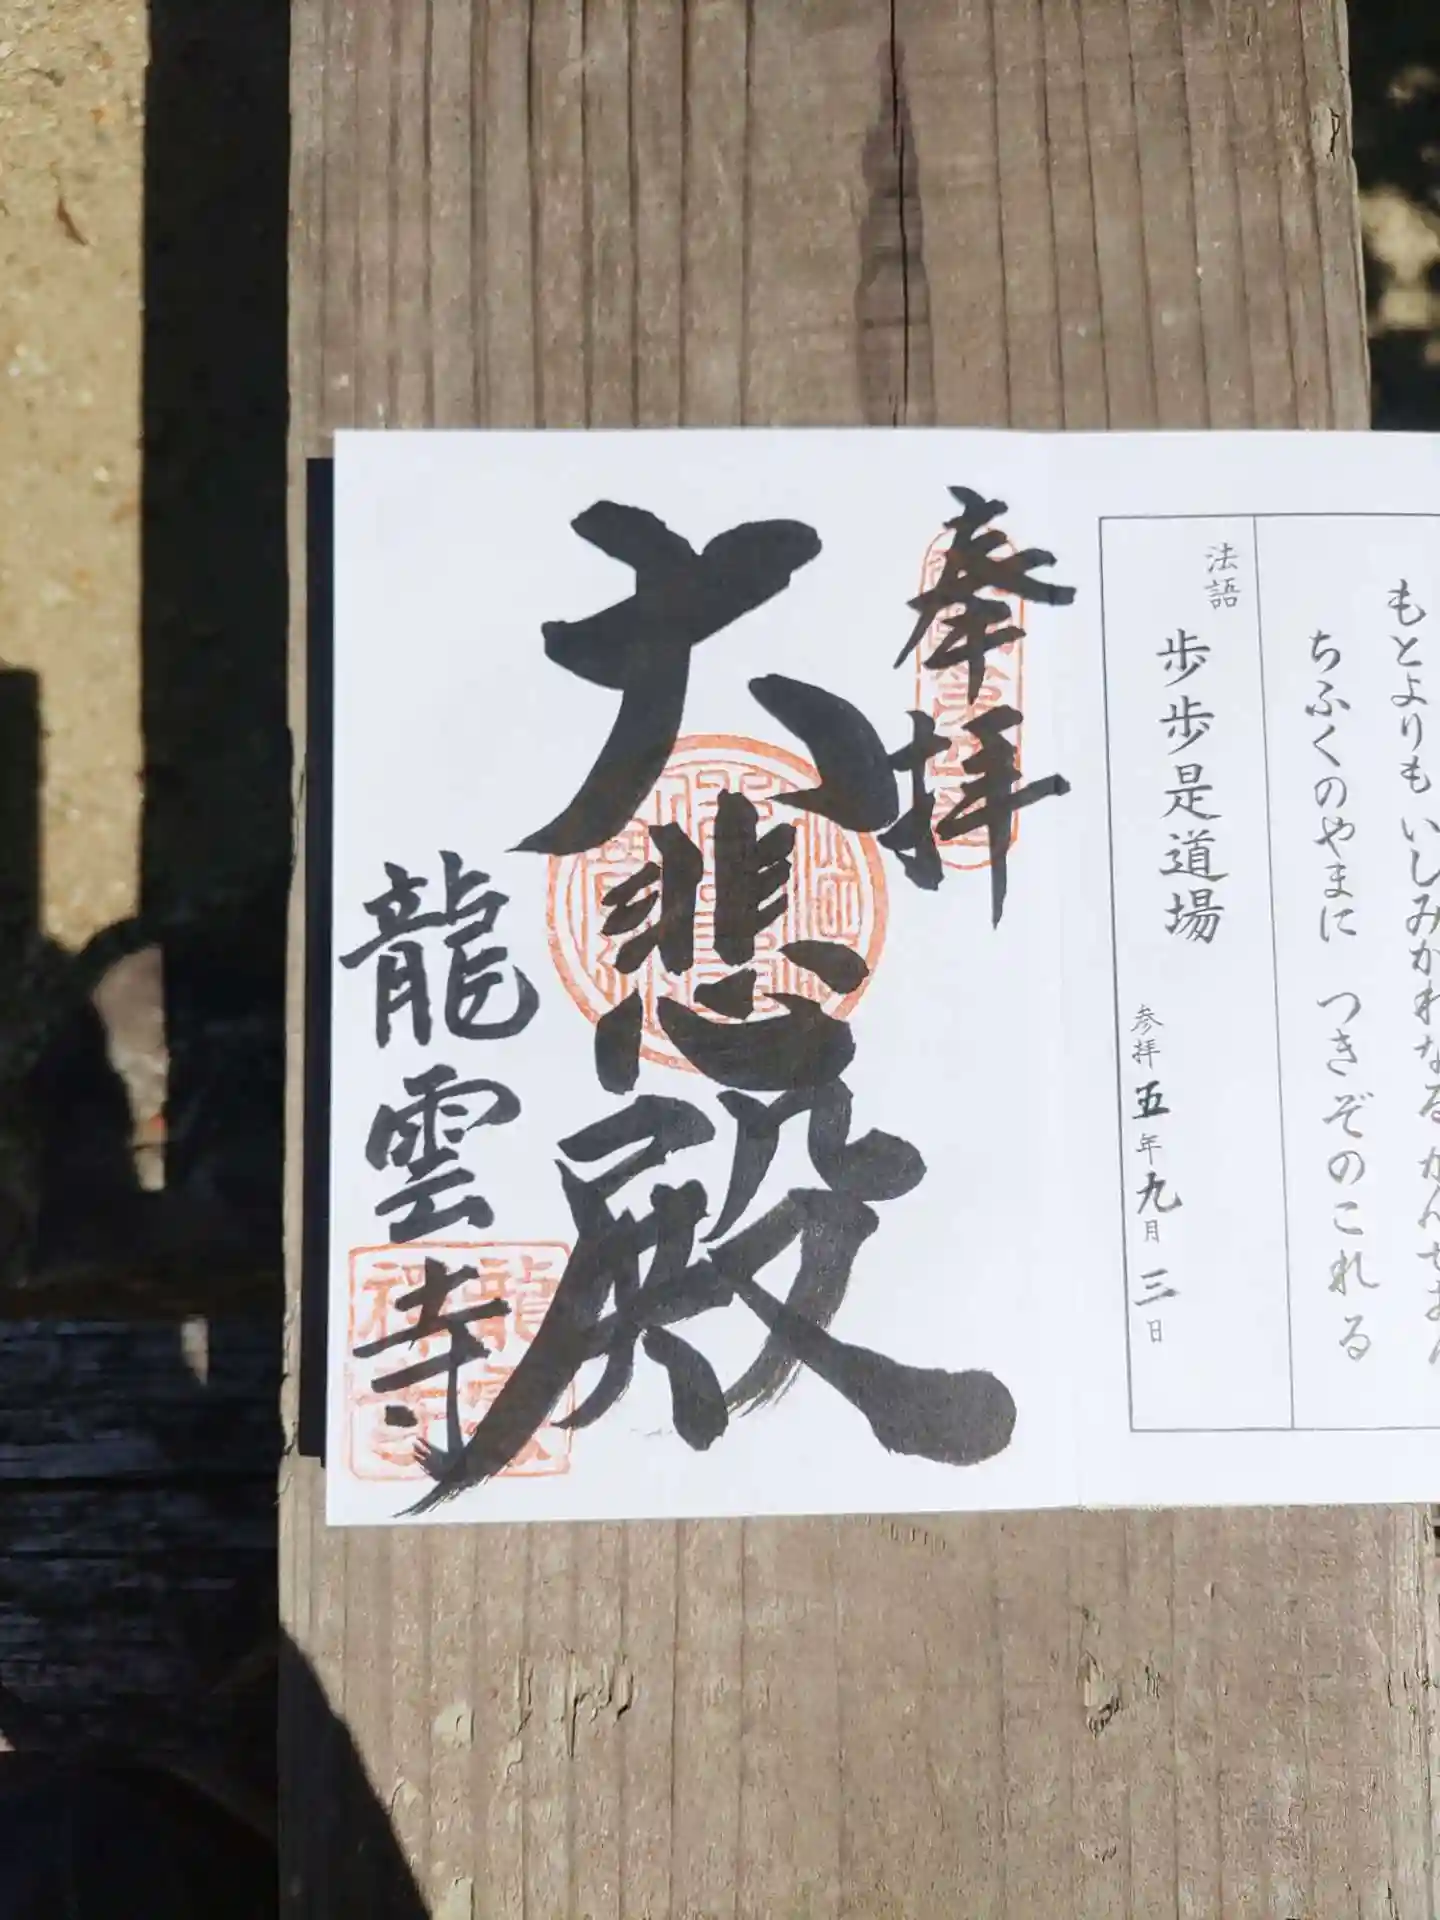 もとよりも いしみかれなるかんせおん
ちふくのやまに つきぞのこれる
法語 歩歩是道場
参拝 五年九月三日
奉拝
大悲殿
龍雲寺